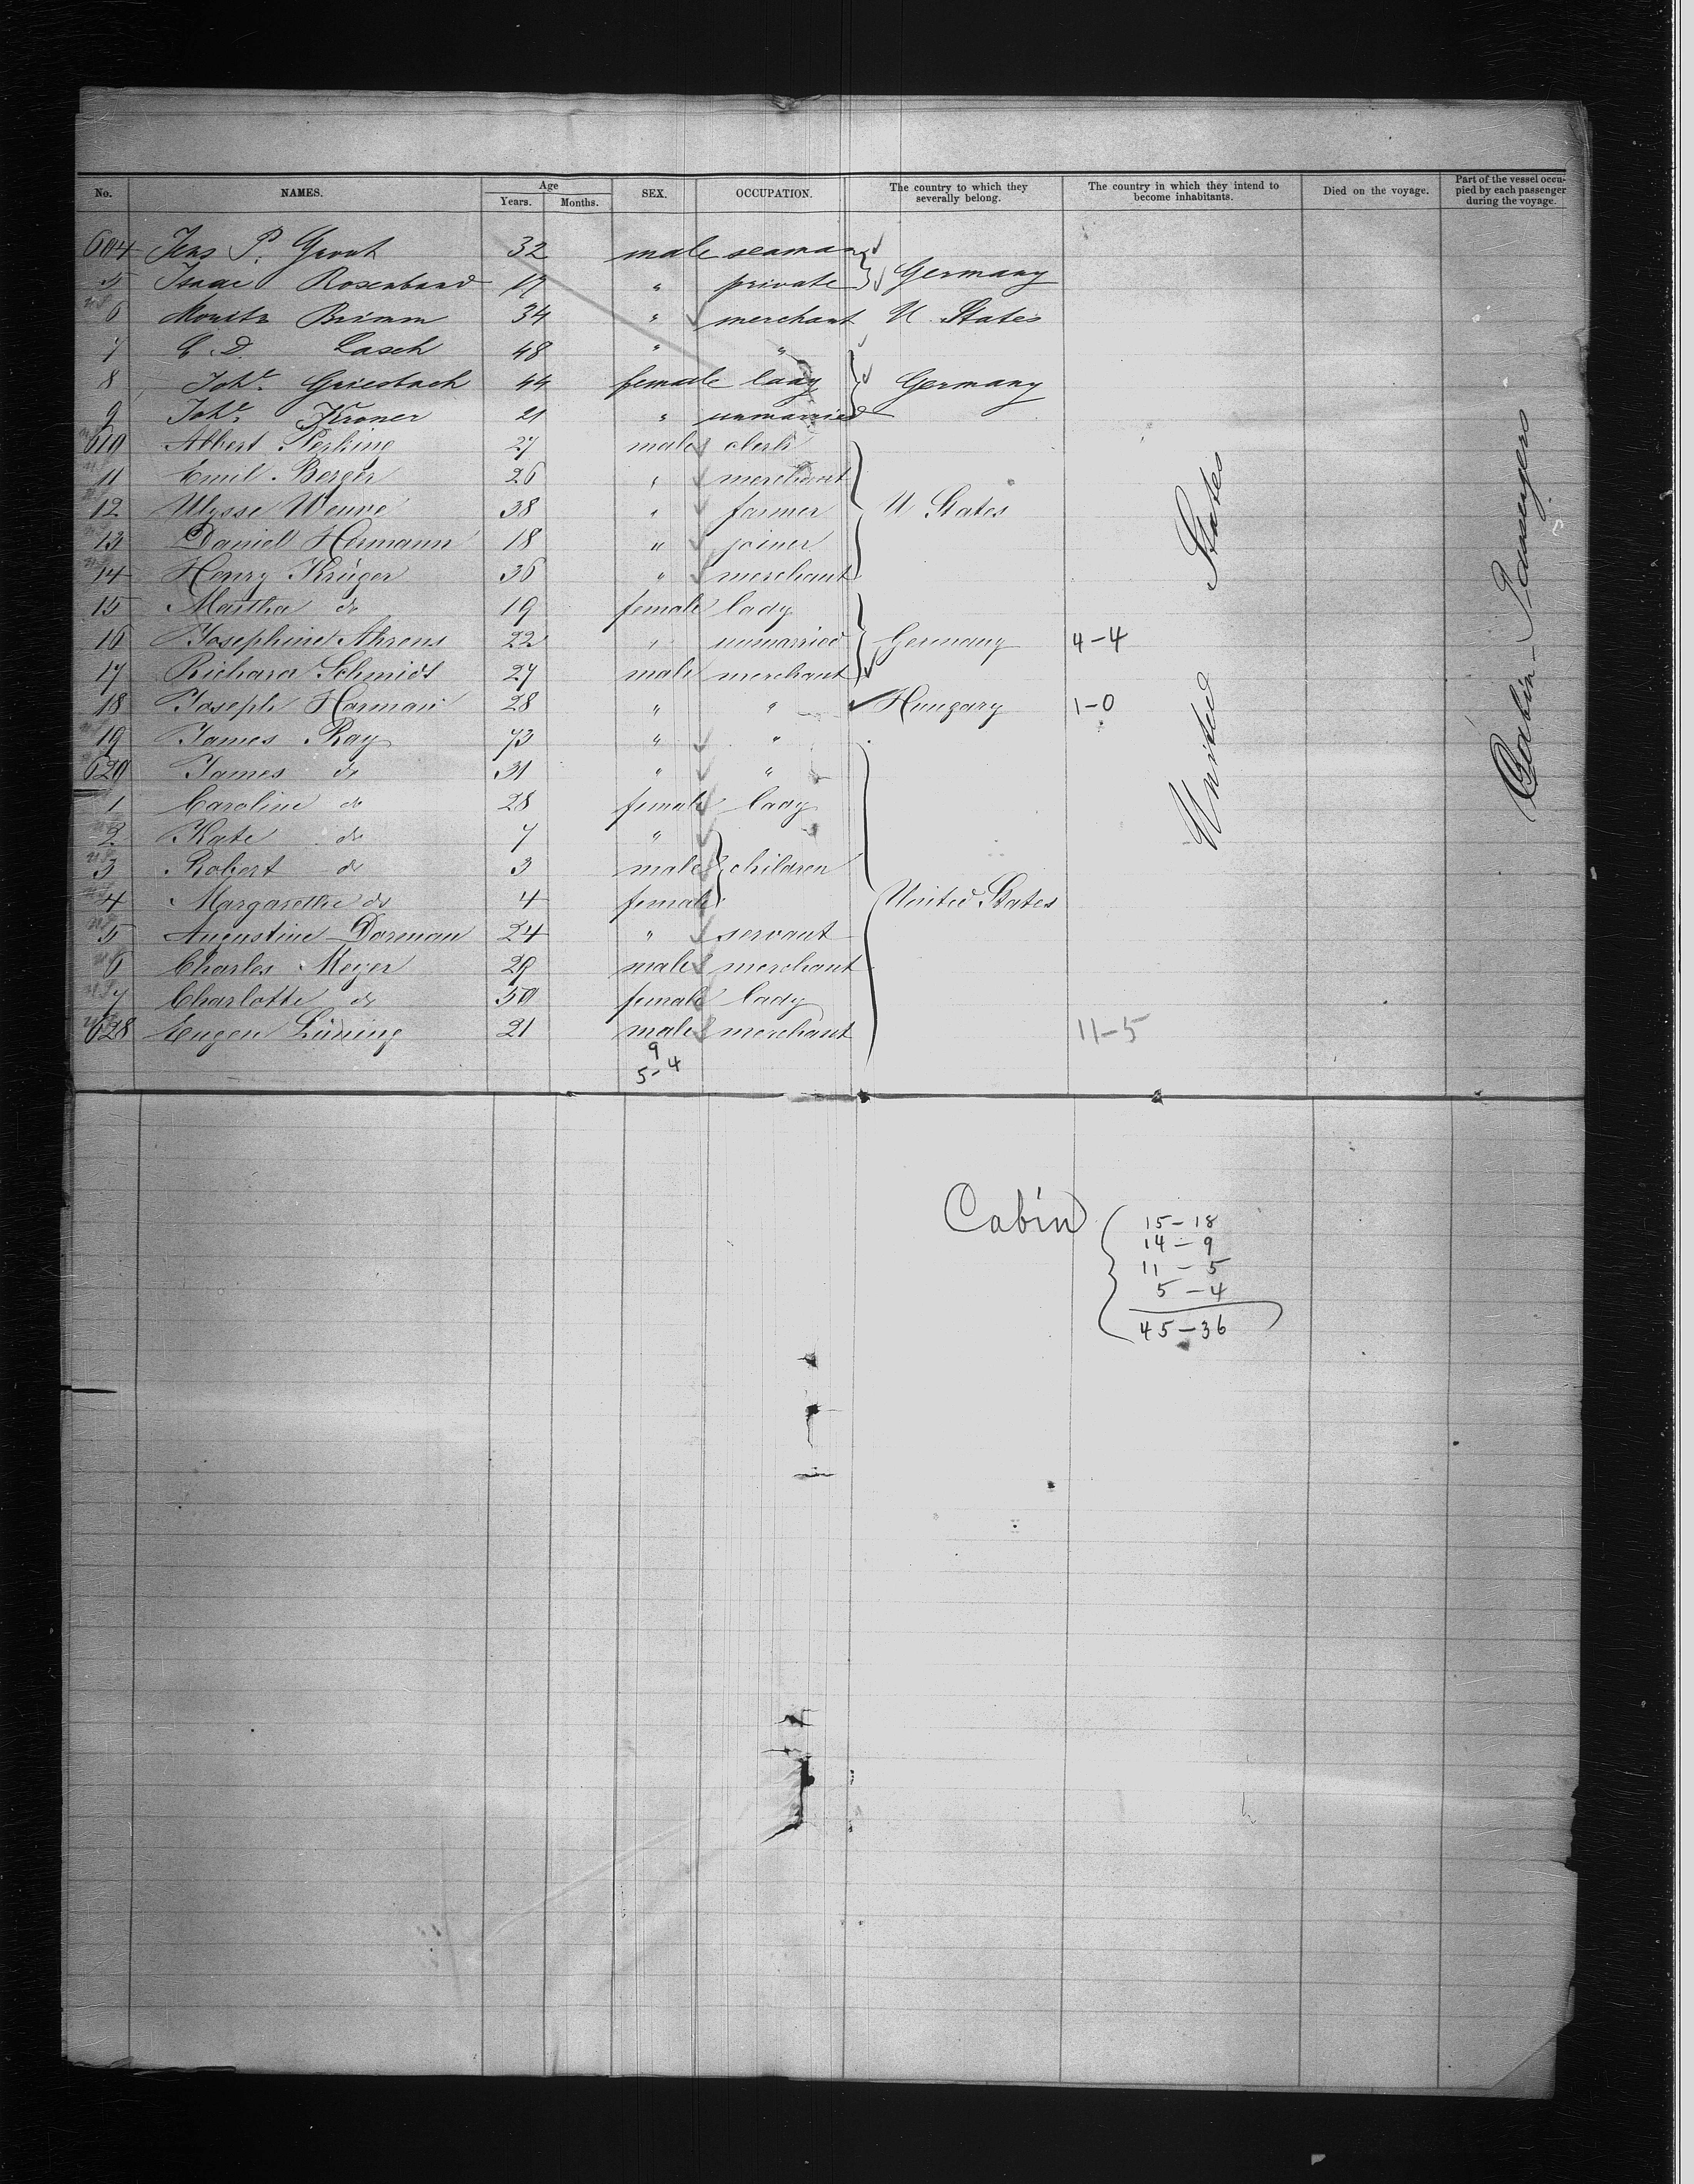 No. NAMES. Age Years. Months. SEX. OCCUPATION. The country to which they severally belong. The country in which they intend to become inhabitants. Died on the voyage. Part of the vessel occupied by each passenger during the voyage.
604 Jens P. 32 male seaman
5 Isaac Rosenband 19 " private Germany
6 Moritz Brimm 34 " merchant U. States
7 C. D. Lasch 48 " "
8 Joh.e Griesbach 44 female lady Germany
9 Joh.e Kroner 21 " unmarried
610 Albert 27 male clerk
11 Emil Berger 26 " merchant
12 Ulysse 38 " farmer U States
13 Daniel Hermann 18 " joiner
14 Henry Krüger 36 " merchant
15 Martha do 19 female lady
16 Josephine Ahrens 22 " unmarried Germany 4-4
17 Richard Schmidt 27 male merchant
18 Joseph 28 " " Hungary 1-0
19 James Ray 73 " "
620 James do 31 " "
1 Caroline do 28 female lady
2 Kate do 7 "
3 Robert do 3 male children
4 Margarethe do 4 female United States
5 Augustine Dorman 24 " servant
6 Charles Meyer 29 male merchant
7 Charlotte do 50 female lady
628 Eugen Lüning 21 male merchant 11-5
9
5-4
United States
Cabin-Passengers
Cabin
15-18
14-9
11-5
5-4
45-36